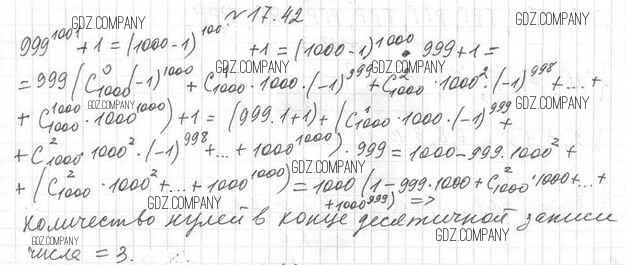 №17.42
GDZ.COMPANY GDZ.COMPANY
999^1001 + 1 = (1000-1)^100 + 1 = (1000-1)^1000 · 999 + 1 =
GDZ.COMPANY GDZ.COMPANY GDZ.COMPANY
= 999 (C^0_1000 (-1)^1000 + C^1_1000 · 1000 · (-1)^999 + C^2_1000 · 1000^2 · (-1)^998 + ... +
GDZ.COMPANY GDZ.COMPANY
+ C^1000_1000 · 1000^1000) + 1 = (999·1+1) + (C^1_1000 · 1000 · (-1)^999 +
+ C^2_1000 · 1000^2 · (-1)^998 + ... + 1000^1000) · 999 = 1000 - 999·1000^2 +
GDZ.COMPANY
+ (C^2_1000 · 1000^2 + ... + 1000^1000) = 1000 (1 - 999·1000 + C^2_1000 · 1000 + ... +
GDZ.COMPANY GDZ.COMPANY
+ 1000^999) =>
количество нулей в конце десятичной записи
GDZ.COMPANY GDZ.COMPANY
числа = 3.